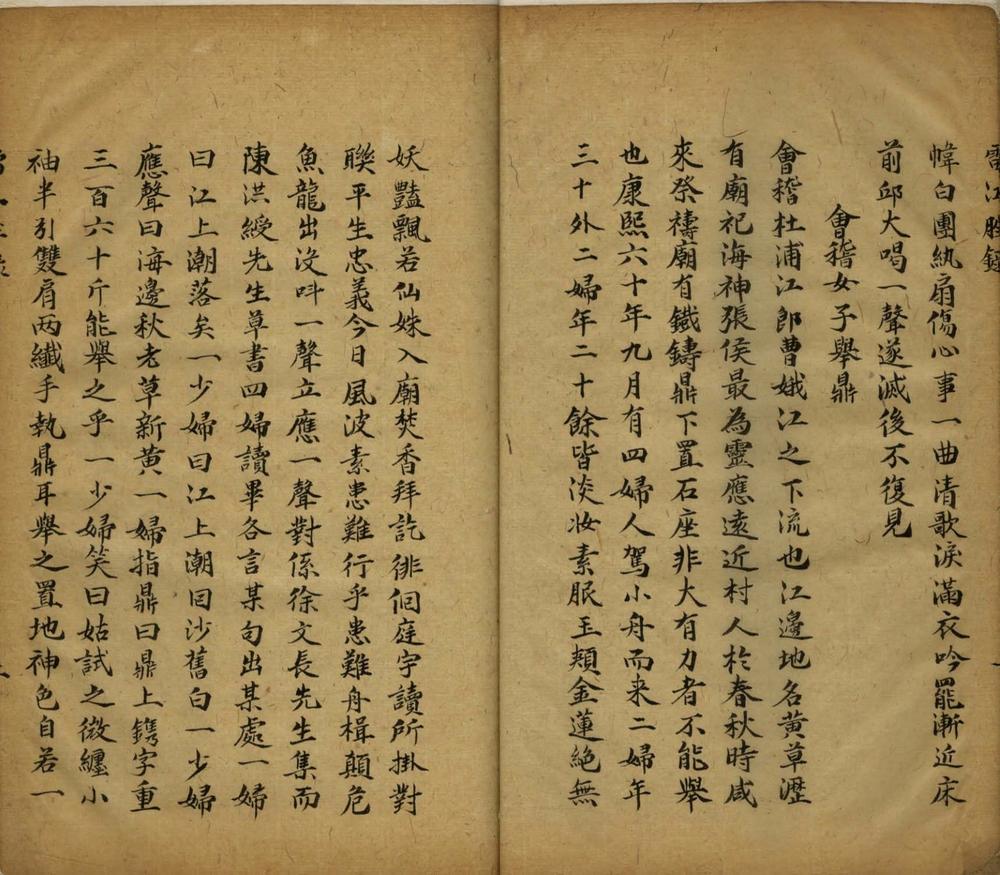 幃白團紈扇傷心事一曲清歌淚滿衣吟罷漸近床
前邱大喝一聲遂滅後不復見
會稽女子舉鼎
會稽杜浦江郎曹娥江之下流也江邊地名黃草瀝
有廟祀海神張侯最為靈應遠近村人於春秋時咸
來祭禱廟有鐵鑄鼎下置石座非大有力者不能舉
也康熙六十年九月有四婦人駕小舟而来二婦年
三十外二婦年二十餘皆淡妝素服玉頰金蓮絕無
妖豔飄若仙姝入廟焚香拜訖徘徊庭宇讀所掛對
聯平生忠義今日風波素患難行乎患難舟楫顛危
魚龍出沒呌一聲立應一聲對係徐文長先生集而
陳洪綬先生草書四婦讀畢各言某句出某處一婦
曰江上潮落矣一少婦曰江上潮囘沙舊白一少婦
應聲曰海邊秋老草新黃一婦指鼎曰鼎上鐫字重
三百六十斤能舉之乎一少婦笑曰姑試之微纏小
袖半引雙肩兩纖手執鼎耳舉之置地神色自若一